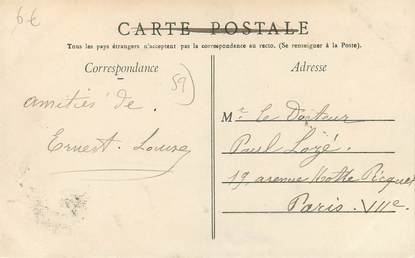 6€
CARTE POSTALE
Tous les pays étrangers n'acceptent pas la correspondance au recto. (Se renseigner à la Poste).
Correspondance
Adresse
59
amitiés de.
Ernest. Louise
Mr. le Docteur
Paul Lozé.
19, avenue Motte Picquet
Paris. VIIe.